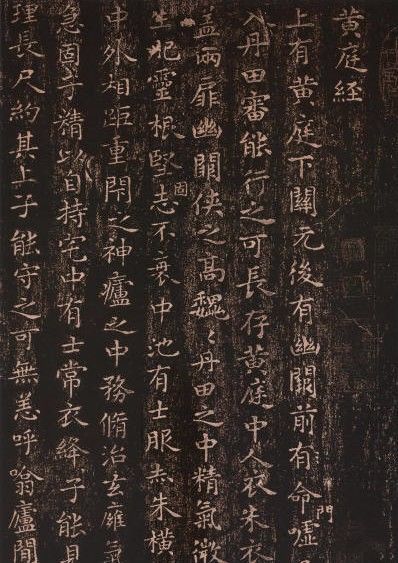 黄庭經
上有黄庭下關元後有幽闕前有命門嘘
入丹田審能行之可長存黄庭中人衣朱衣
盖兩扉幽闕俠之高巍〻丹田之中精氣微
生肥靈根堅固志不衰中池有士服赤朱横
中外相距重閇之神廬之中務脩治玄廱氣
急固子精以自持宅中有士常衣絳子能見
理長尺約其上子能守之可無恙呼噏廬間